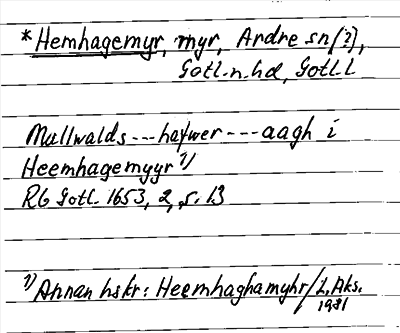 *Hemhagemyr, myr, Ardre sn(?),
Gotl. n. hd, Gotl. l
Mullwalds --- hafwer --- aagh i
Heemhagemyyr 1)
RG Gotl. 1653, 2, s. 13
1) Annan hskr: Heemhaghamyhr / L. Aks.
1981